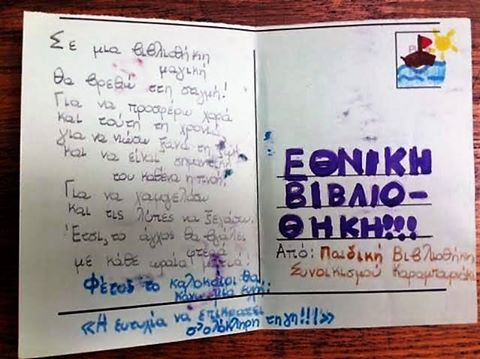 Σε μια βιβλιοθήκη
μαγική
θα βρεθώ στη στιγμή!
Για να προσφέρω χαρά
και τούτη τη χρονιά,
για να νιώσω ξανά τη
και να είναι σημαντική
του καθένα η πνοή!
Για να χαμογελάσω
και τις λύπες να ξεχάσω.
Έτσι, το άγχος θα βγάλει
φτερά
με κάθε ωραία ματιά!
Φέτος το καλοκαίρι θα
κάνω μια ευχή:
«Η ευτυχία να επικρατεί
σ' ολόκληρη τη γη!!!»
ΕΘΝΙΚΗ
ΒΙΒΛΙΟ-
ΘΗΚΗ!!!
Από: Παιδική Βιβλιοθήκη
Συνοικισμού Χαραμπαράκη